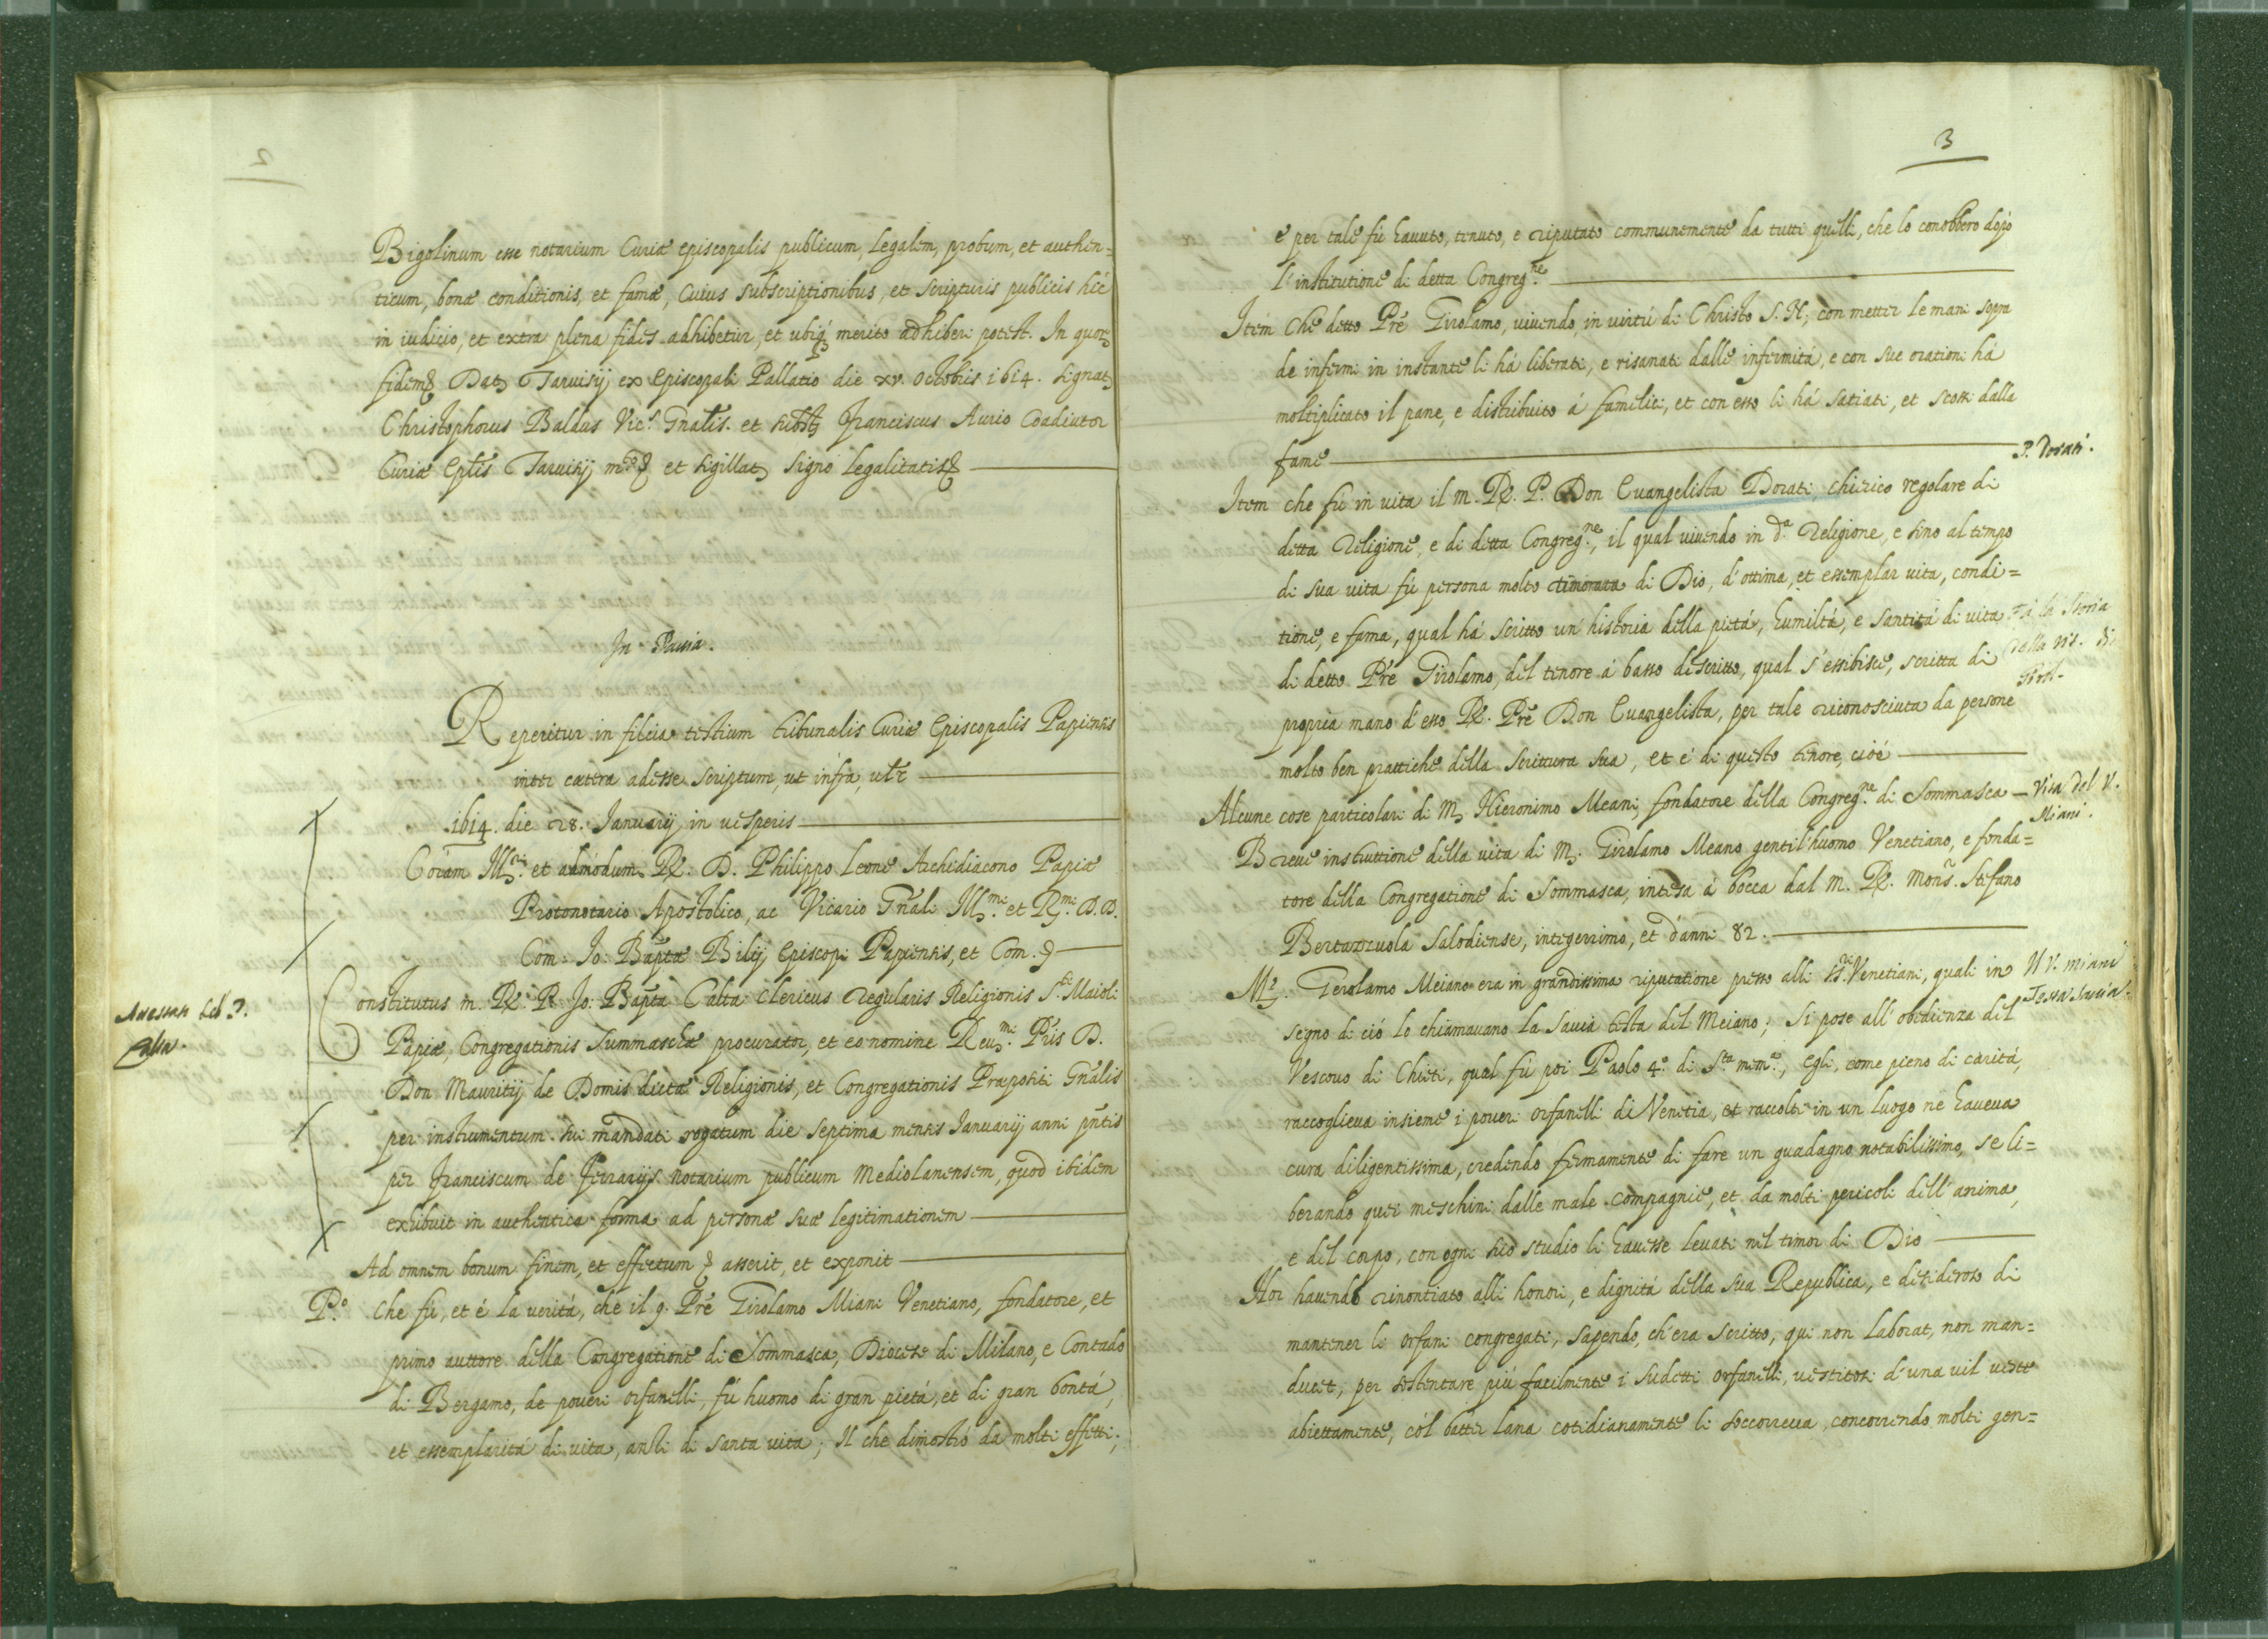 Bigolinum esse notarium Curiæ episcopalis publicum, legalem, probum, et authen=
ticum, bonæ conditionis, et famæ, cuius subscriptionibus, et scripturis publicis hic
in iudicio, et extra plena fides adhibetur, et ubiq; merito adhiberi potest. In quor
fidem Dat Tarvisij ex episcopali Pallatio die xv. octobris 1614. signat
Christophorus Baldus Vic.s Gnalis. et subst Franciscus Aurio Coadiutor
Curiæ Eplis Tarvisij et sigillat signo legalitatis
In Pavia.
Reperitur in filcia testium tribunalis Curiæ Episcopalis Papiensis
inter cætera adesse scriptum, ut infra, vlz
1614. die 28. Januarij in vesperis
Coram Ill.ri et admodum R. D. Philippo Leone Archidiacono Papiæ
Protonotario Apostolico, ac Vicario Gnali Ill.mi et R.mi D.D.
Com. Jo: Baptæ Bilij Episcopi Papiensis, et Com.
Constitutus m. R. P. Jo: Bapta Calta clericus regularis Religionis S.ti Maioli
Papiæ, Congregationis Summaschæ procurator, et eo nomine Reu.mi Pris D.
Don Mauritij de Domis dictæ Religionis, et Congregationis Præpositi Gnalis
per instrumentum sui mandati rogatum die septima mensis Januarij anni pntis
per Franciscum de Ferrarijs notarium publicum Mediolanensem, quod ibidem
exhibuit in authentica forma ad personæ suæ legitimationem
Ad omnem bonum finem, et effectum asserit, et exponit
P.o Che fù, et è la verità, che il q. Pre Girolamo Miani Venetiano, fondatore, et
primo auttore della Congregatione di Sommasca, Diocese di Milano, e Contado
di Bergamo, de poveri orfanelli, fù huomo di gran pietà, et di gran bontà,
et essemplarità di vita, anzi di santa vita; Il che dimostrò da molti effetti;
3
e per tale fù havuto, tenuto, e riputato communemente da tutti quelli, che lo conobbero dopò
l'institutione di detta Congreg.ne
Item che detto Pre Girolamo, vivendo, in virtù di Christo S. N., con metter le mani sopra
de infermi in instante li há liberati, e risanati dalle infermità, e con sue orationi há
moltiplicato il pane, e distribuito à famelici, et con esso li há satiati, et scossi dalla
fame
P. Dorati.
Item che fù in vita il m. R. P. Don Evangelista Dorati, chierico regolare di
detta Religione, e di detta Congreg.ne, il qual vivendo in d.a Religione, e sino al tempo
di sua vita fù persona molto timorata di Dio, d'ottima, et essemplar vita, condi=
tione, e fama, qual há scritto un' historia della pietá, humiltá, e santitá di vita
Fa la Storia
di detto Pre Girolamo, del tenore à basso descritto, qual s'essibisce, scritta di
della vit. di
propria mano d'esso R. Pre Don Evangelista, per tale riconosciuta da persone
molto ben prattiche della scrittura sua, et è di questo tenore, cioè
Alcune cose particolari di M. Hieronimo Meani, fondatore della Congreg.ne di Sommasca
Vita del V.
Miani.
Breve instruttione della vita di M. Girolamo Meano gentil'huomo Venetiano, e fonda=
tore della Congregatione di Sommasca, intesa à bocca dal m. R. Mons. Stefano
Bertazzuola Salodiense, integerrimo, et d'anni 82.
M.r Gerolamo Meiano era in grandissima riputatione presso alli SS.ri Venetiani, quali in
Il V. Miani
segno di ciò lo chiamavano la savia testa del Meiano; Si pose all' obedienza del
Testa Savia.
Vescovo di Chieti, qual fù poi Paolo 4.o di S.ta mem.a, egli, come pieno di carità,
raccoglieva insieme i poveri orfanelli di Venetia, et raccolti in un luogo ne haveva
cura diligentissima, credendo fermamente di fare un guadagno notabilissimo, se li=
berando quei meschini dalle male compagnie, et da molti pericoli dell' anima,
e del corpo, con ogni suo studio li havesse levati nel timor di Dio
Hor havendo rinontiato alli honori, e dignità della sua Republica, e desideroso di
mantener li orfani congregati, sapendo, ch'era scritto, qui non laborat, non man=
ducet, per sostentare più facilmente i sudetti orfanelli, vestitosi d'una vil veste
abiettamente, col batter lana cotidianamente li soccorreva, concorrendo molti gen=